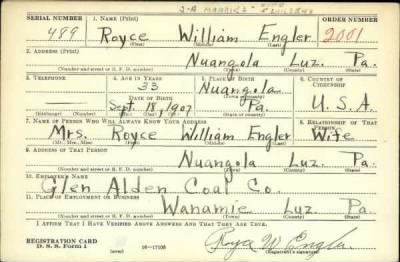 3-A MARRIED - CHILDREN
SERIAL NUMBER 1. NAME (Print) ORDER NUMBER
489 Royce William Engler 2001
(First) (Middle) (Last)
2. ADDRESS (Print)
Nuangola Luz. Pa.
(Number and street or R. F. D. number) (Town) (County) (State)
3. TELEPHONE 4. AGE IN YEARS 5. PLACE OF BIRTH 6. COUNTRY OF CITIZENSHIP
33 Nuangola
DATE OF BIRTH
Sept. 18, 1907 Pa. U.S.A.
(Exchange) (Number) (Mo.) (Day) (Yr.) (State or country)
7. NAME OF PERSON WHO WILL ALWAYS KNOW YOUR ADDRESS 8. RELATIONSHIP OF THAT PERSON
Mrs. Royce William Engler Wife
(Mr., Mrs., Miss) (First) (Middle) (Last)
9. ADDRESS OF THAT PERSON
Nuangola Luz. Pa.
(Number and street or R. F. D. number) (Town) (County) (State)
10. EMPLOYER'S NAME
Glen Alden Coal Co.
11. PLACE OF EMPLOYMENT OR BUSINESS
Wanamie Luz. Pa.
(Number and street or R. F. D. number) (Town) (County) (State)
I AFFIRM THAT I HAVE VERIFIED ABOVE ANSWERS AND THAT THEY ARE TRUE.
REGISTRATION CARD
D. S. S. Form 1 16-17105 Royce W. Engler
(Registrant's signature)